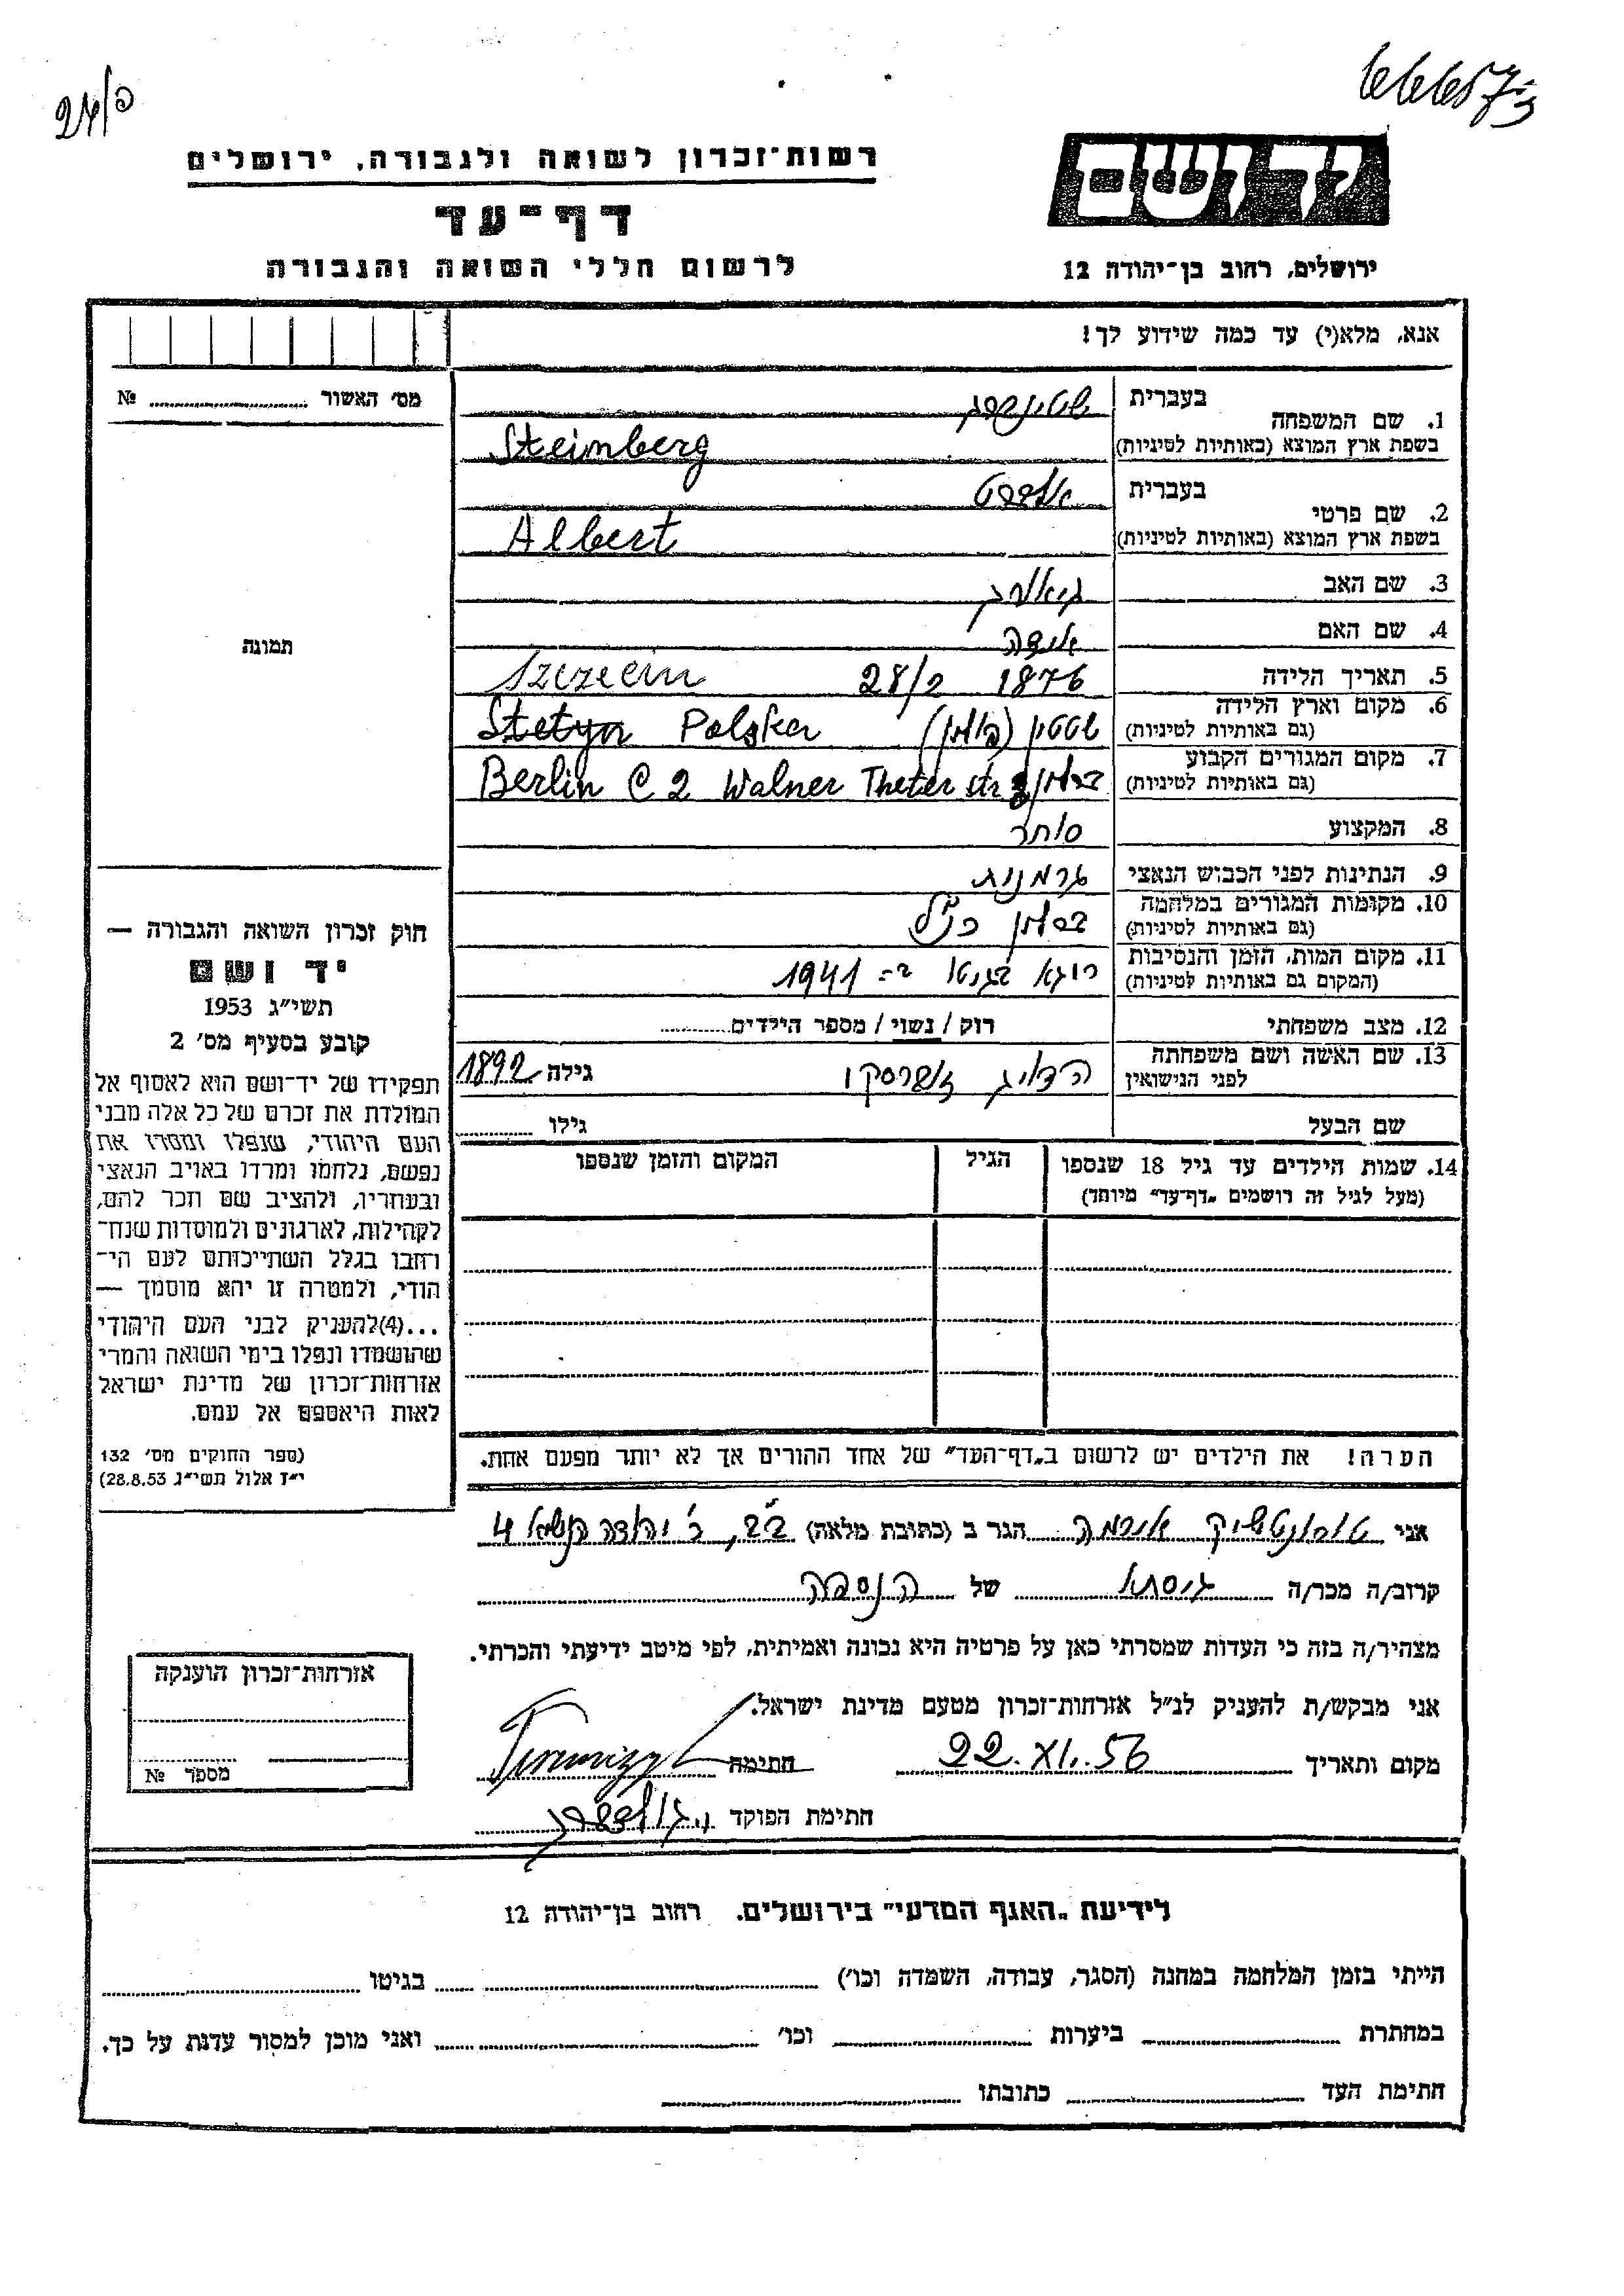 רשות־זכרון לשואה ולגבורה, ירושלים
דף־עד
לרשום חללי השואה והגבורה
יד ושם
ירושלים, רחוב בן־יהודה 12
אנא, מלא(י) עד כמה שידוע לך!
מס׳ האשור № 
תמונה
1. שם המשפחה בעברית שטינברג
בשפת ארץ המוצא (באותיות לטיניות) Steinberg
2. שם פרטי בעברית אלברט
בשפת ארץ המוצא (באותיות לטיניות) Albert
3. שם האב
4. שם האם
5. תאריך הלידה 28/2 1876 Szczecin
6. מקום וארץ הלידה (גם באותיות לטיניות) שטטין (פולין) Stetyn Polska
7. מקום המגורים הקבוע (גם באותיות לטיניות) ברלין Berlin C 2 Walner Theter str
8. המקצוע סוחר
9. הנתינות לפני הכבוש הנאצי גרמנית
10. מקומות המגורים במלחמה (גם באותיות לטיניות) ברלין כנ״ל
11. מקום המות, הזמן והנסיבות (המקום גם באותיות לטיניות) ריגא בגיטו ב־ 1941
12. מצב משפחתי רוק / נשוי / מספר הילדים
13. שם האשה ושם משפחתה לפני הנישואין הדויג גילה 1892
שם הבעל גילו
14. שמות הילדים עד גיל 18 שנספו הגיל המקום והזמן שנספו
(מעל לגיל זה רושמים „דף־עד״ מיוחד)
הערה! את הילדים יש לרשום ב„דף־העד״ של אחד ההורים אך לא יותר מפעם אחת.
חוק זכרון השואה והגבורה —
יד ושם
תשי״ג 1953
קובע בסעיף מס׳ 2
תפקידו של יד־ושם הוא לאסוף אל
המולדת את זכרם של כל אלה מבני
העם היהודי, שנפלו ומסרו את
נפשם, נלחמו ומרדו באויב הנאצי
ובעוזריו, ולהציב שם וזכר להם,
לקהילות, לארגונים ולמוסדות שנח־
רחבו בגלל השתייכותם לעם הי־
הודי, ולמטרה זו יהא מוסמך —
...(4)להעניק לבני העם היהודי
שהושמדו ונפלו בימי השואה והמרי
אזרחות־זכרון של מדינת ישראל
לאות היאספם אל עמם.
(ספר החוקים מס׳ 132
י״ז אלול תשי״ג 28.8.53)
אני אירמה הגר ב (כתובת מלאה) ב״ב, ר׳ יהודה הנשיא 4
קרוב/ה מכר/ה גיסתו של הנספה
מצהיר/ה בזה כי העדות שמסרתי כאן על פרטיה היא נכונה ואמיתית, לפי מיטב ידיעתי והכרתי.
אני מבקש/ת להעניק לנ״ל אזרחות־זכרון מטעם מדינת ישראל.
מקום ותאריך 22.XI.56 חתימה
חתימת הפוקד
אזרחות־זכרון הוענקה
מספר №
לידיעת „האגף המדעי״ בירושלים. רחוב בן־יהודה 12
הייתי בזמן המלחמה במחנה (הסגר, עבודה, השמדה וכו׳) בגיטו
במחתרת ביערות וכו׳ ואני מוכן למסור עדות על כך.
חתימת העד כתובתו